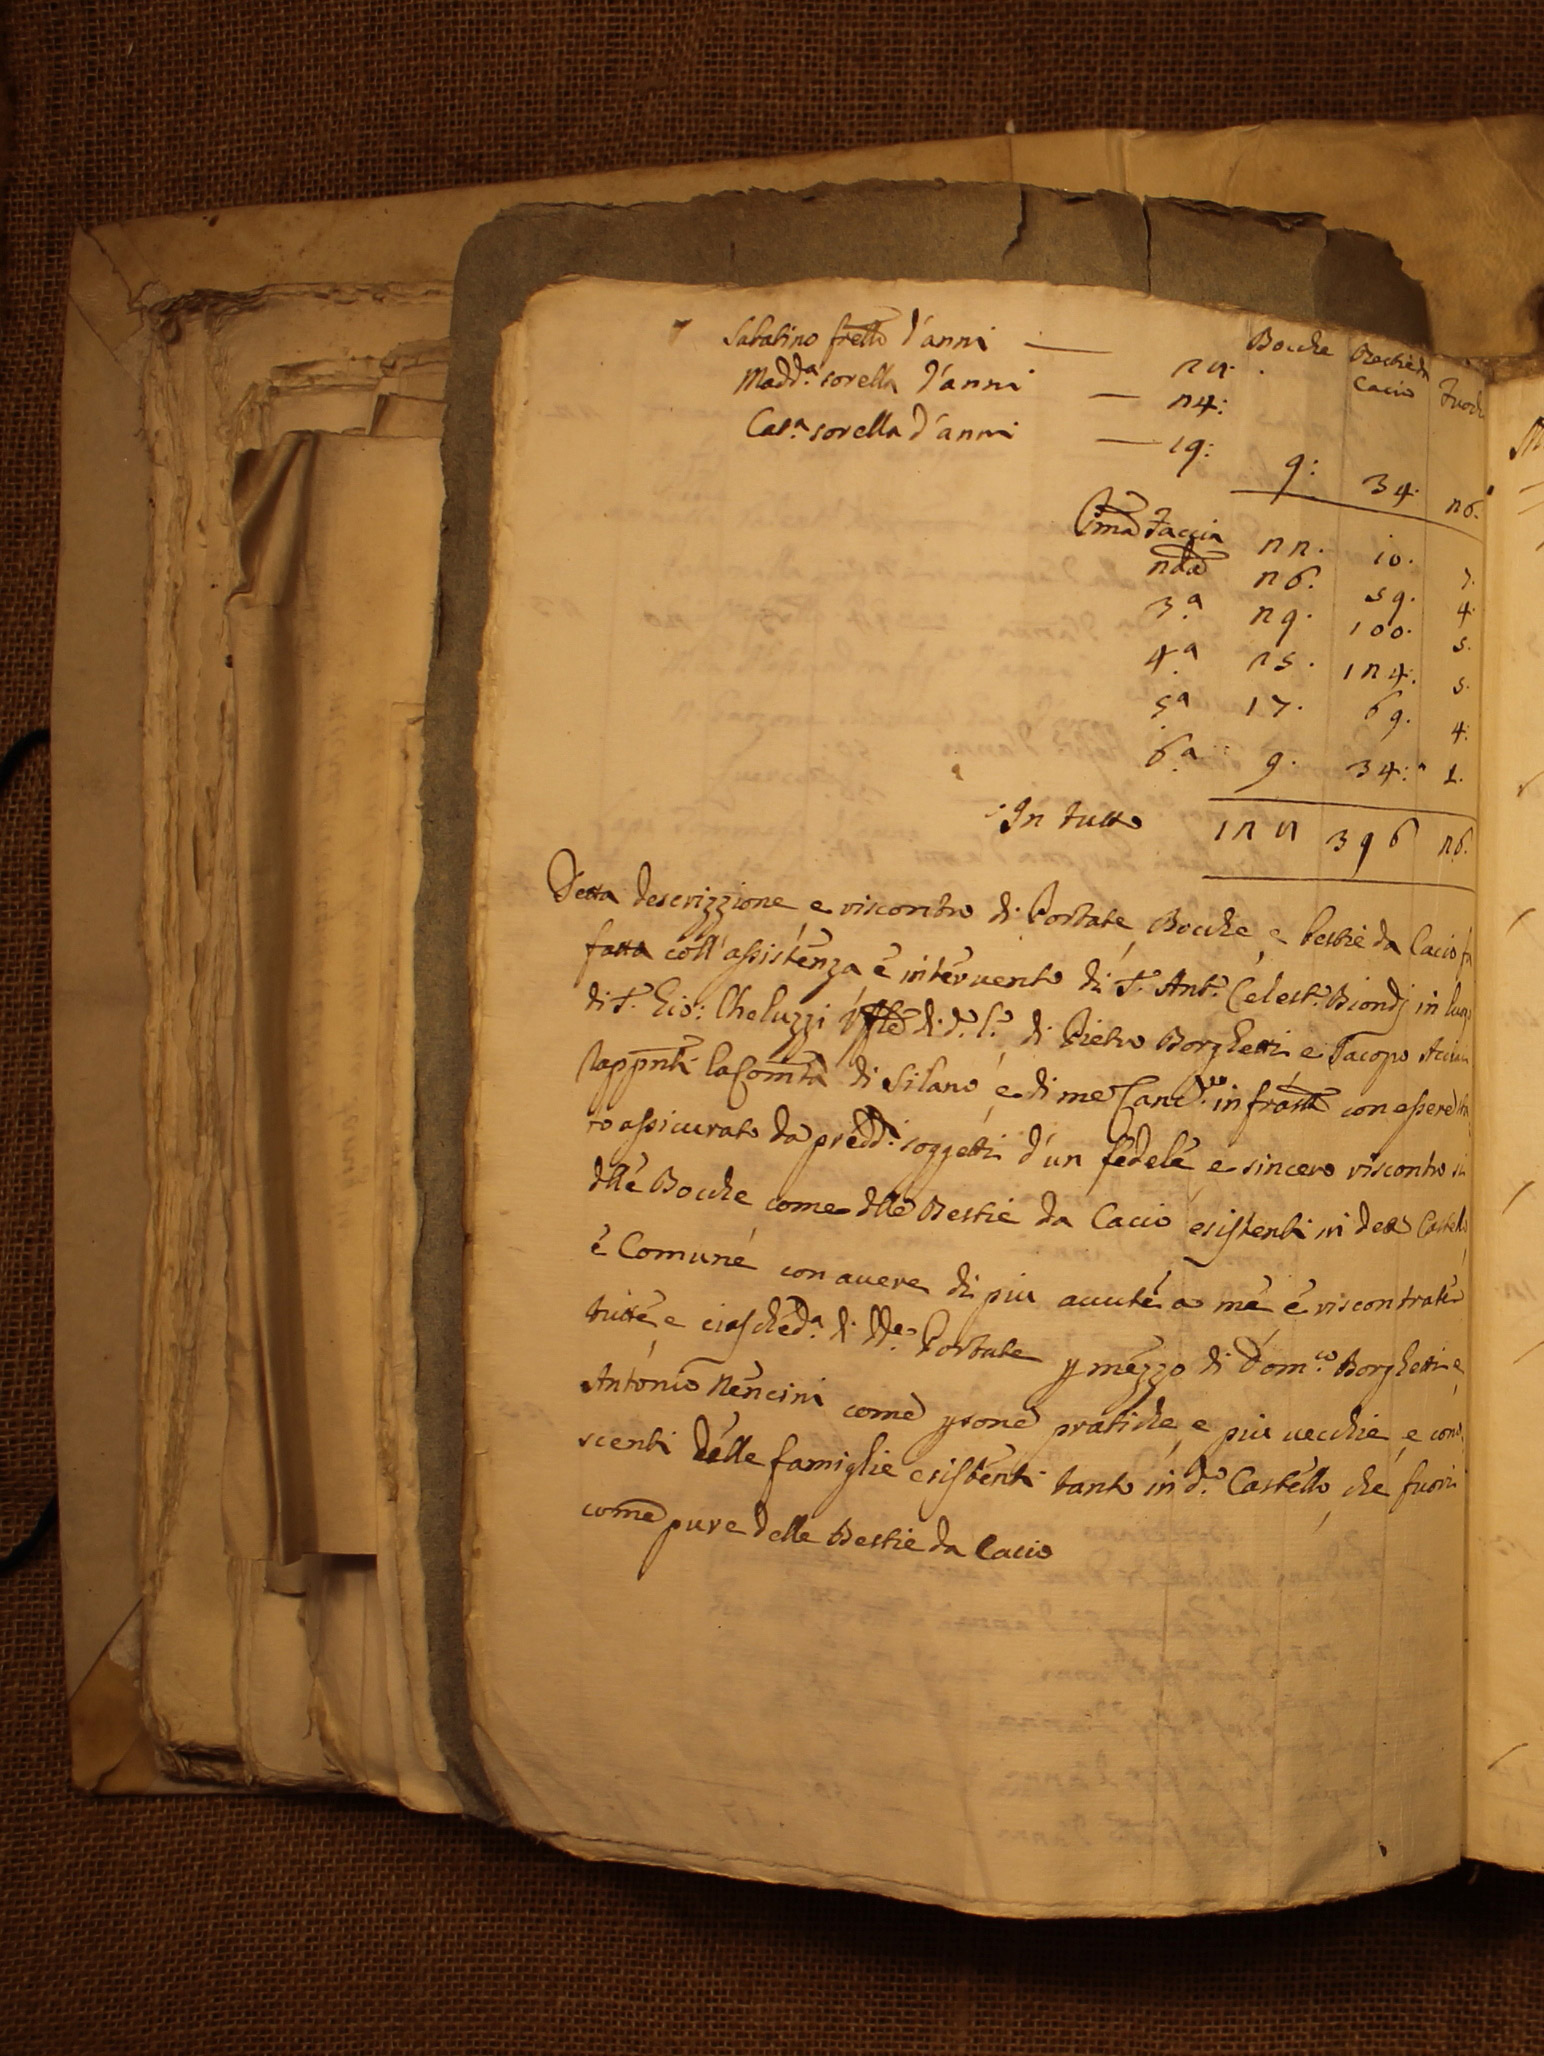 Bocche Bestie da Cacio Fuochi
Sabatino frello d'anni — 28.
Madd.a sorella d'anni — 24:
Cat.a sorella d'anni — 19: 9: 34. 26.
Pma Faccia 22. 10. 7.
2da 26. 59. 4.
3.a 29. 100. 5.
4.a 25. 124. 5.
5.a 17. 69. 4:
6.a 9. 34: 1.
In tutto 128 396 26.
Detta descrizzione e riscontro di Portate, Bocche, e bestie da Cacio
fatta coll'assistenza e intervento di S.r Ant.o Celest.o Biondj in luogo
di S.r Gio: Cheluzzi di d.o l.o, di Pietro Borghetti e Jacopo
Rappnti la Comtà di Silano e di me Canc.re infratto con essere
to assicurato da predd.i soggetti d'un fedele e sincero riscontro si
dlle Bocche come dlle Bestie da Cacio esistenti in detto Castello
e Comune con avere di piu avute a me e riscontrate
tutte e ciasched.a di dde. Portate p mezzo di Dom.co Borghetti e
Antonio Nencini come psone pratiche e piu vecchie e cono
scenti delle famiglie esistenti tanto in d.o Castello che fuori
come pure delle Bestie da Cacio